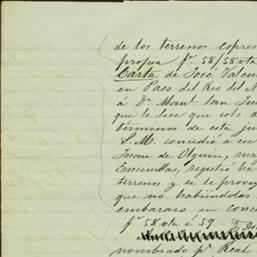 de los terrenos espres
propia fª 58/58 vta
Carta de José Valen
en Paso del Rio del N
á Dn Manl San Jua
que le dice que esto a
términos de esta ju
S. M. concedió a su
Juan de Olguin, ma
Encinillas, registró ha
terrenos y se le provey
que no habiéndolos
embarazo en conce
fª 58 vta á 59
nombrado pr Real